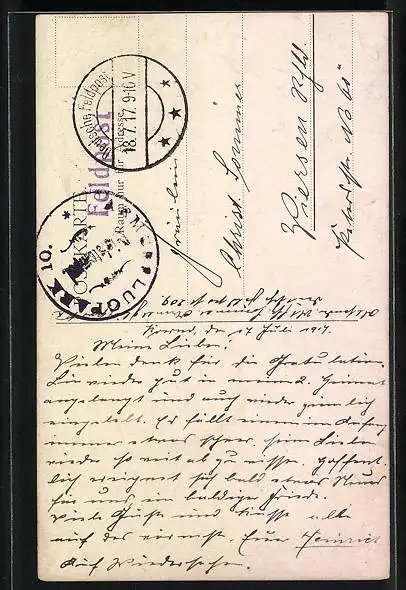 Feldpost
Raum nur für Adresse
Deutsche Feldpost
18.7.17. 9-10 V
FLUGPARK 10.
Fräulein
Christ. Sommer
Viersen Rhld
den 17 Juli 1917.
Meine Lieben!
Vielen Dank für die Gratulation.
Bin wieder gut in meiner 2. Heimat
angelangt und auch wieder ziemlich
eingelebt. Es fällt einem im Anfang
immer etwas schwer, seine Lieben
wieder so weit ab zu wissen. Hoffent-
lich ereignet sich bald etwas Neues
für uns, ein baldiger Friede.
Viele Grüße und Küsse alle
auf das innigste. Euer Heinrich
Auf Wiedersehen.